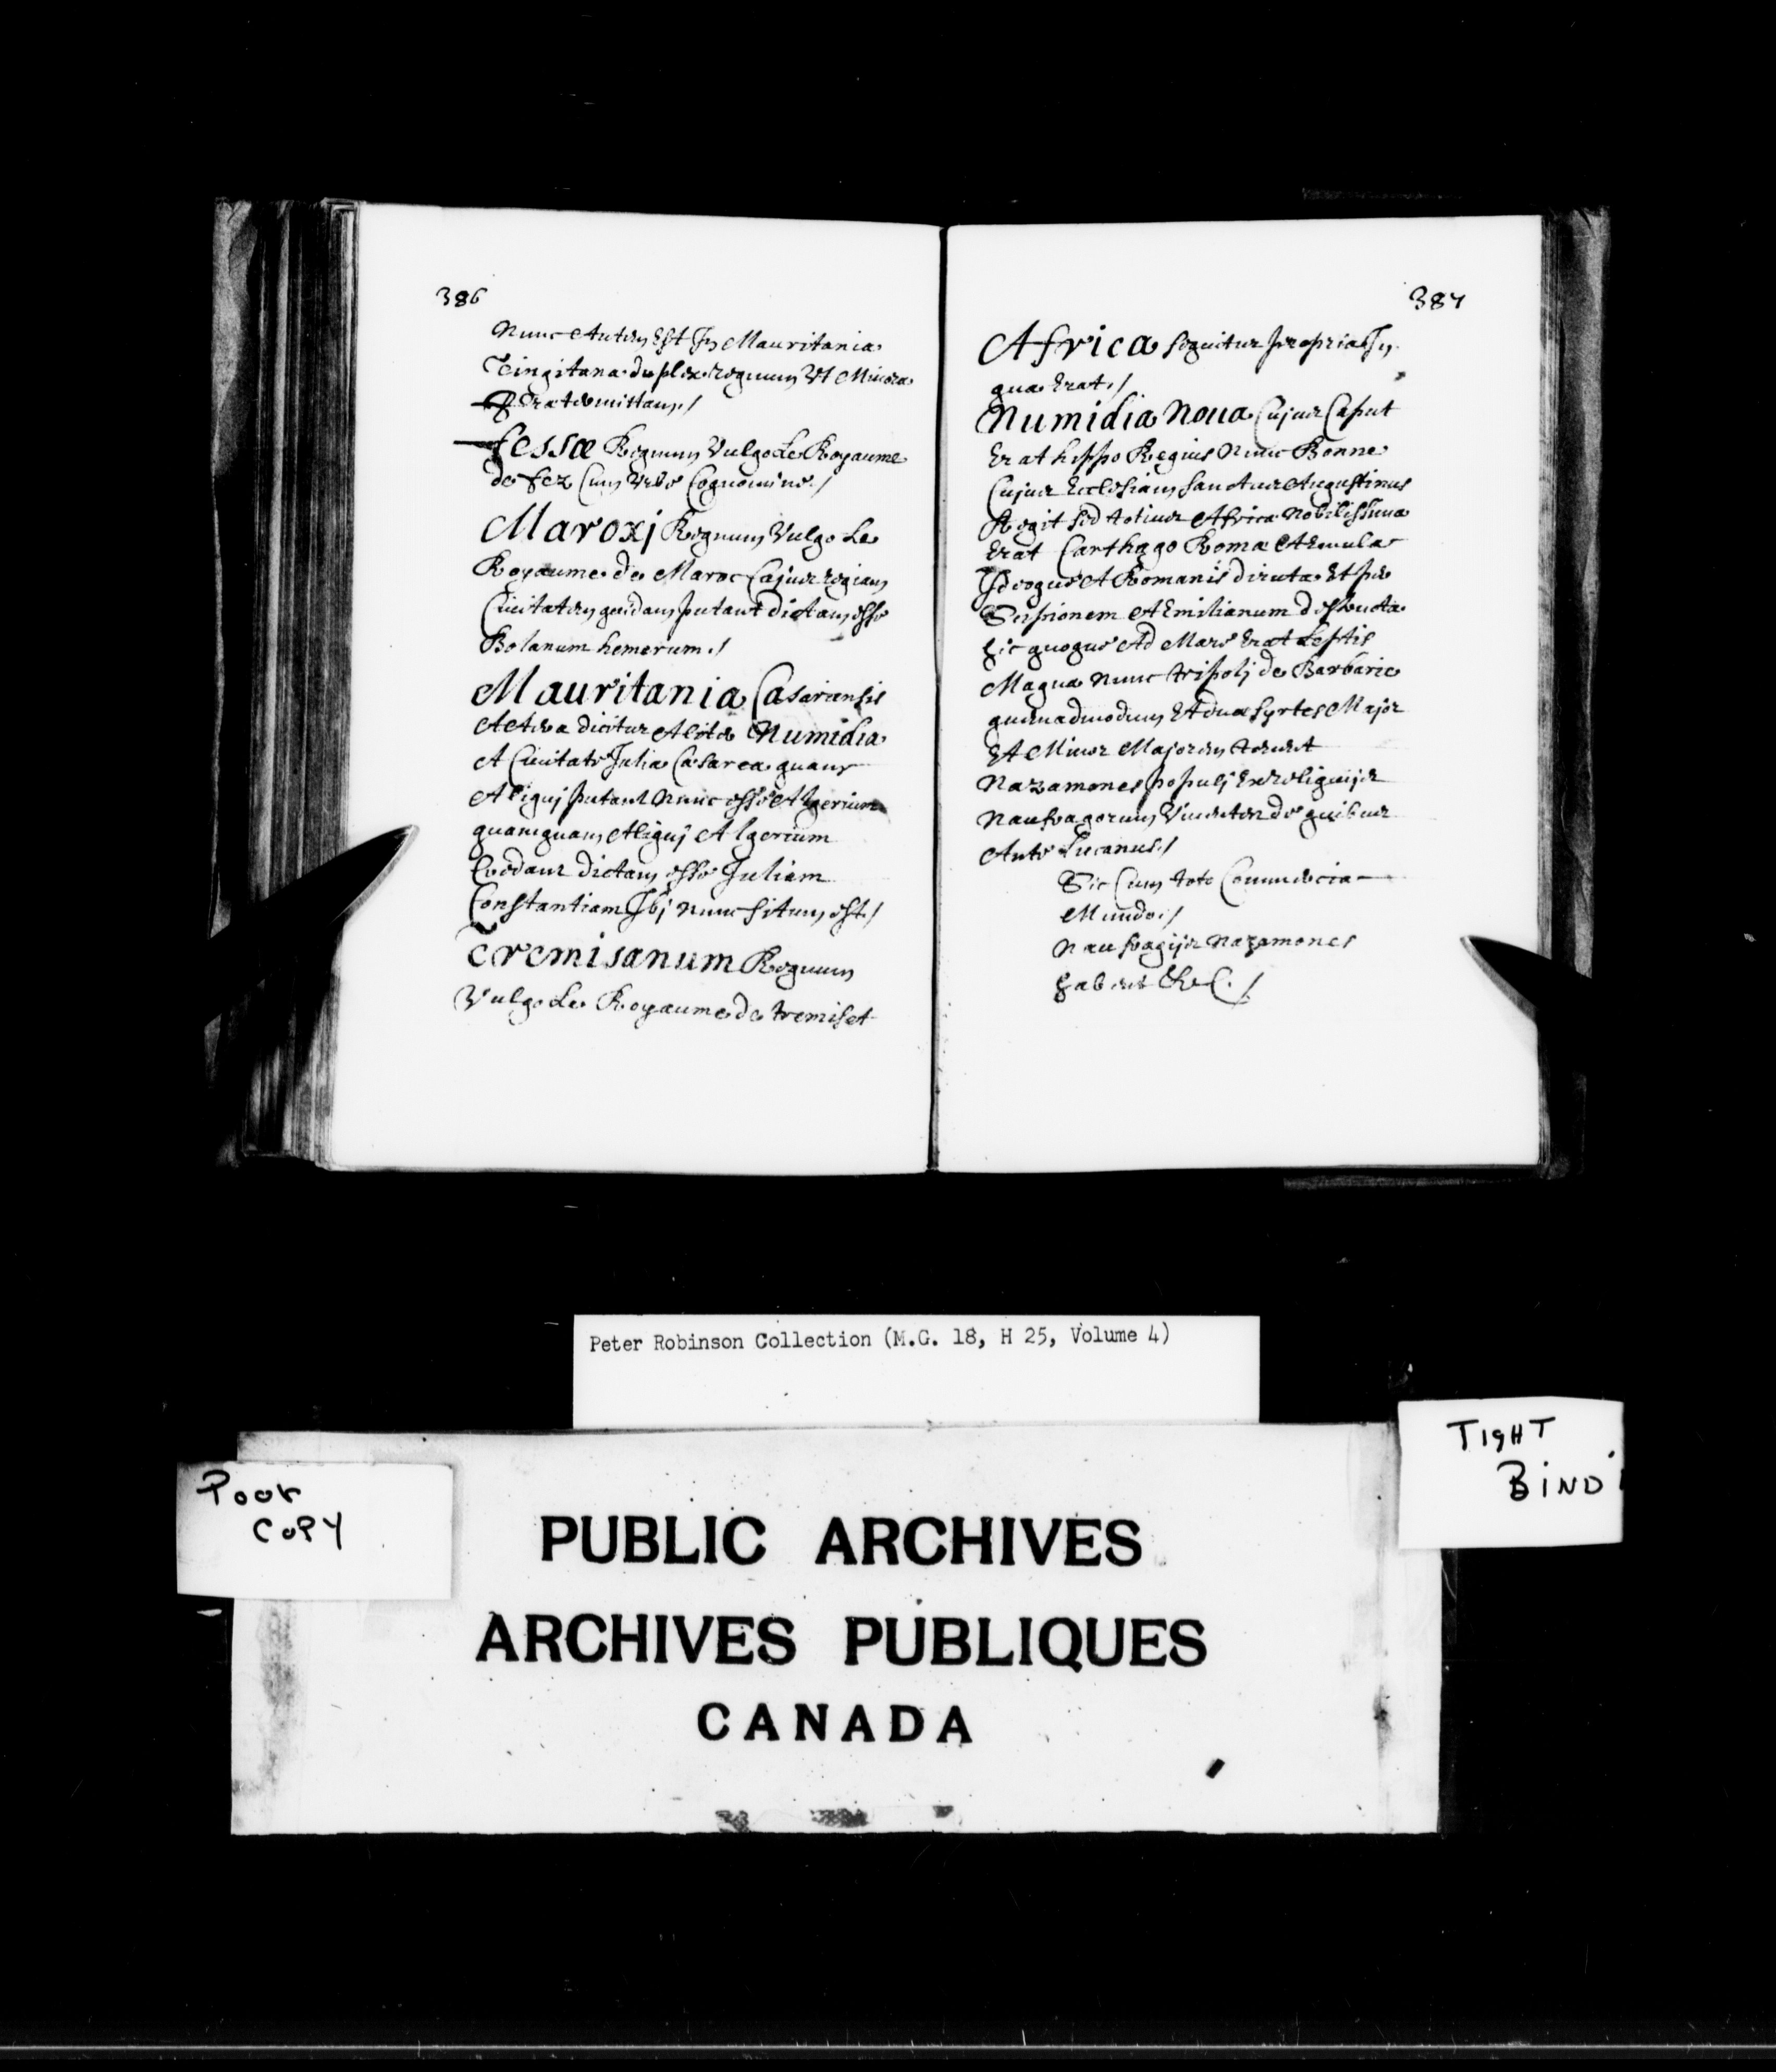 386
Nunc Autem Est In Mauritania
Tingitana duplex regnum Ut Minora
prætermittam ./
Fessæ Regnum Vulgo Le Royaume
de Fez Cum Urbe Cognomine ./
Maroxj Regnum Vulgo Le
Royaume de Maroc Cujus regiam
Civitatem quidam putant Dictam esse
Bolanum hemerum ./
Mauritania Cæsariensis
Altera dicitur Aliter Numidia
A Civitate Julia Cæsarea quam
Aliquj putant nunc esse Algerium
quamquam Aliquj Algerium
Credant dictam esse Juliam
Constantiam Ibj nunc situm est ./
Tremisanum Regnum
Vulgo Le Royaume de tremiset
387
Africa sequitur propria In
qua Erat ./
Numidia Noua Cujus Caput
Erat hippo Regius Nunc Bonne
Cujus Ecclesiam Sanctus Augustinus
Regit sed totius Africæ Nobilissima
Erat Carthago Romæ AEmula
Ideoque A Romanis diruta Et per
Scipionem AEmilianum destructa
hic quoque Ad Mare Erat Leptis
Magna Nunc tripolj de Barbarie
quemadmodum Et duæ Syrtes Major
Et Minor Majorem tenent
Nazamones populj Ex reliquijs
Naufragorum Viventes de quibus
Ante Lucanus ./
Sic Cum toto Commercia
Mundo ./
Naufragijs Nazamones
habent &C. /
Peter Robinson Collection (M.G. 18, H 25, Volume 4)
Poor
Copy
Tight
Bind
PUBLIC ARCHIVES
ARCHIVES PUBLIQUES
CANADA